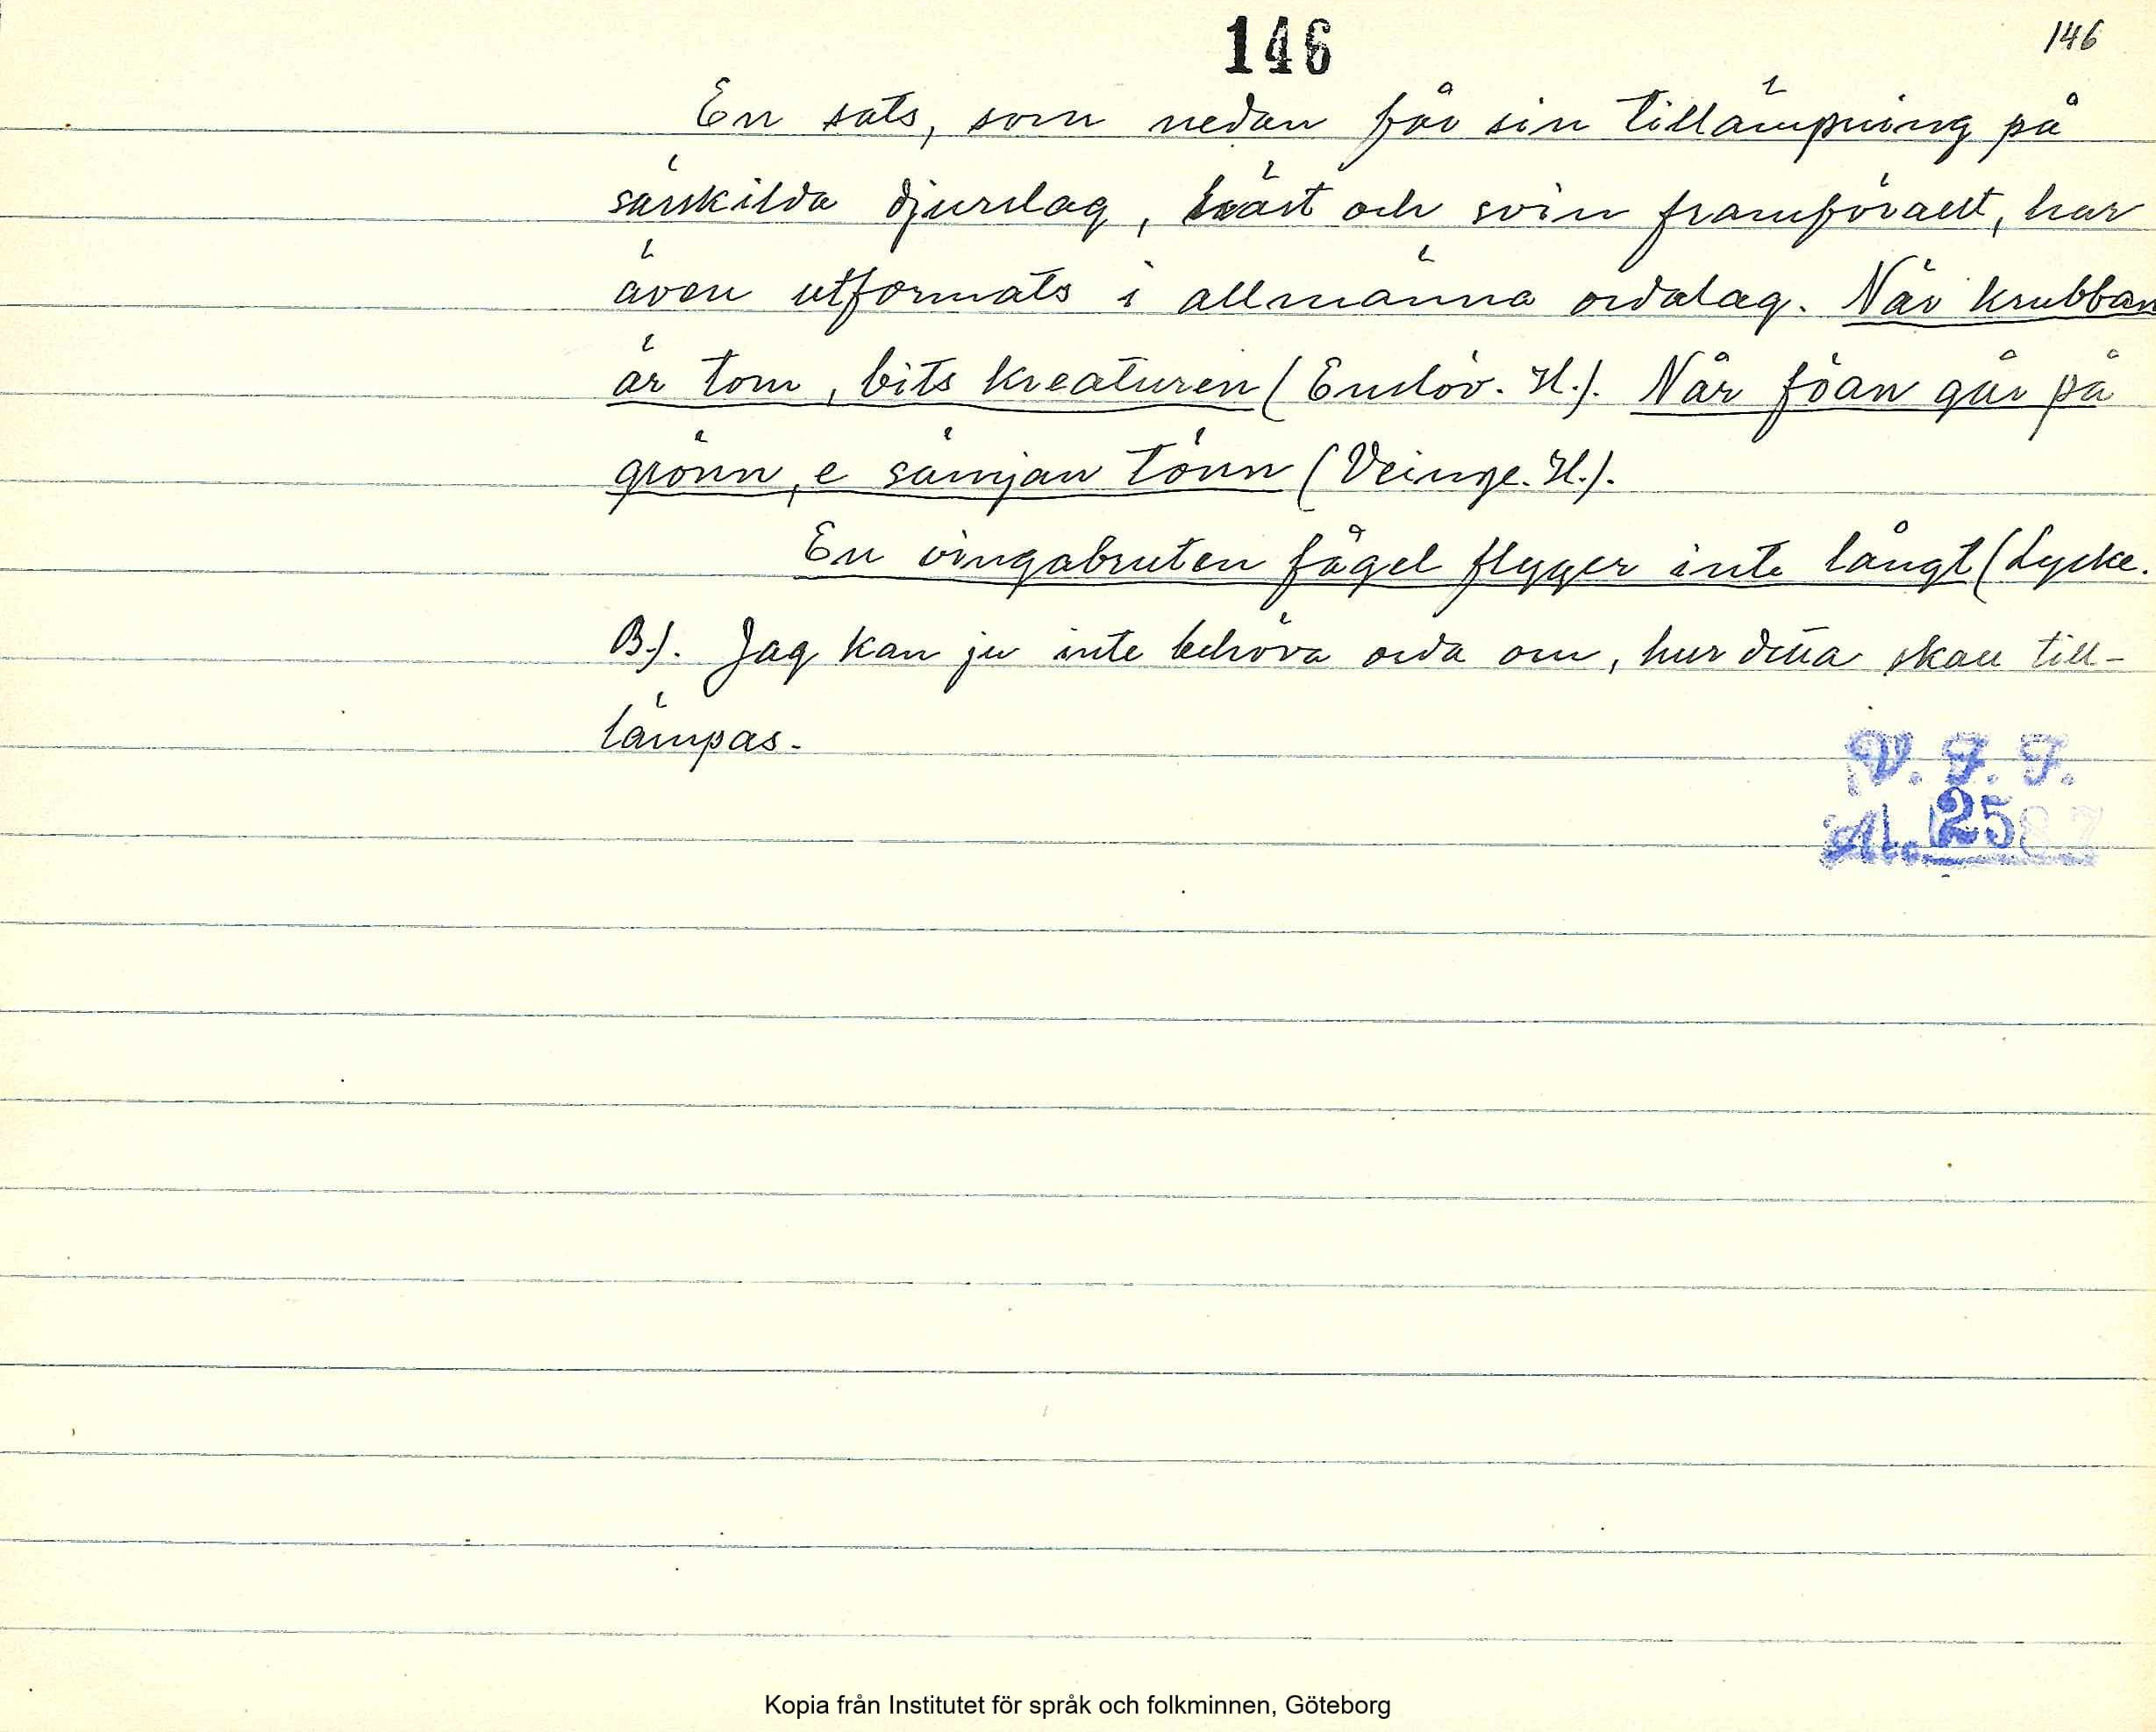 146
146
En sats, som nedan får sin tillämpning på
särskilda djurslag, häst och svin framförallt, har
även utformats i allmänna ordalag. När krubban
är tom, bits kreaturen (Enslöv. H.). När föan går på
grönn, e sämjan tönn (Veinge. H.).
En vingabruten fågel flyger inte långt (Lycke.
B.). Jag kan ju inte behöva orda om, hur detta skall till-
lämpas.
V. F. F.
2587
Kopia från Institutet för språk och folkminnen, Göteborg